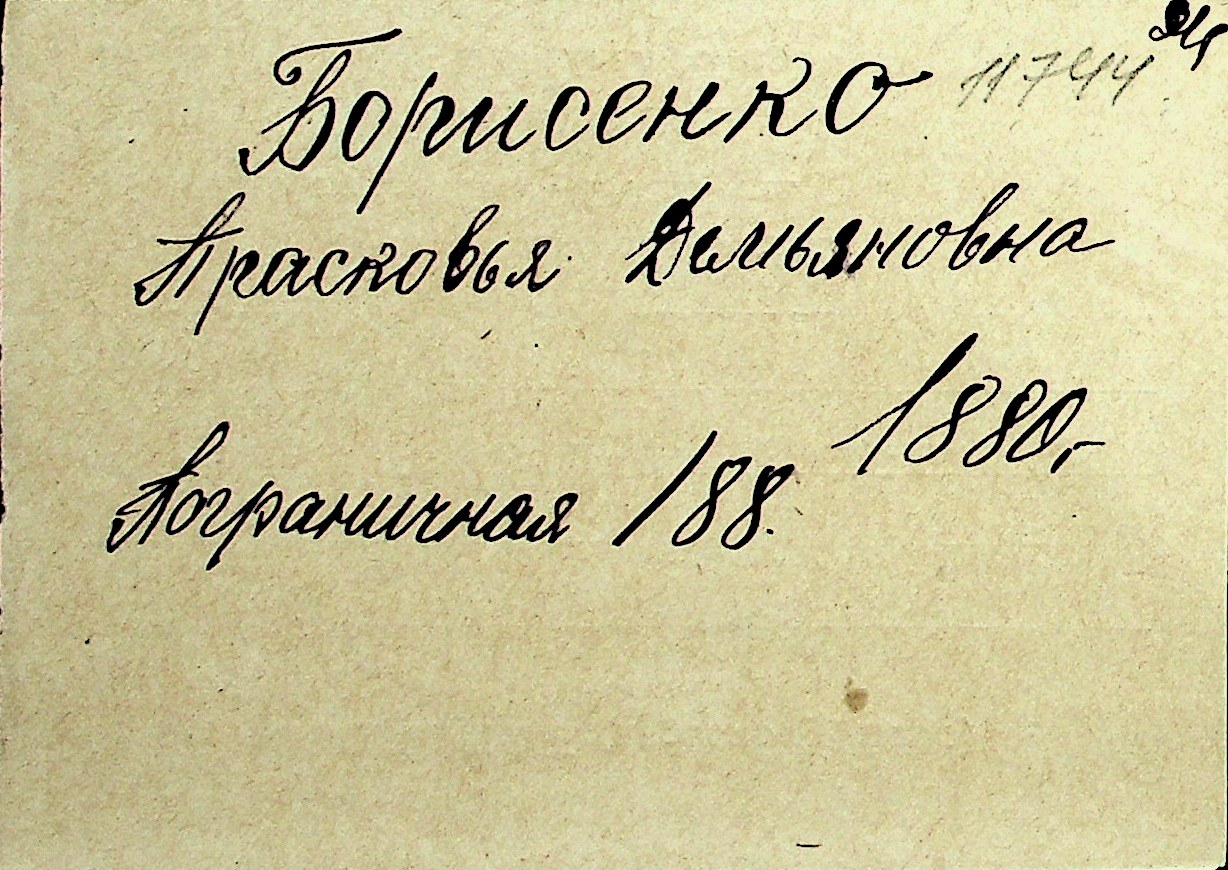 Борисенко 11744
Прасковья Демьяновна
1880,-
Пограничная 188.